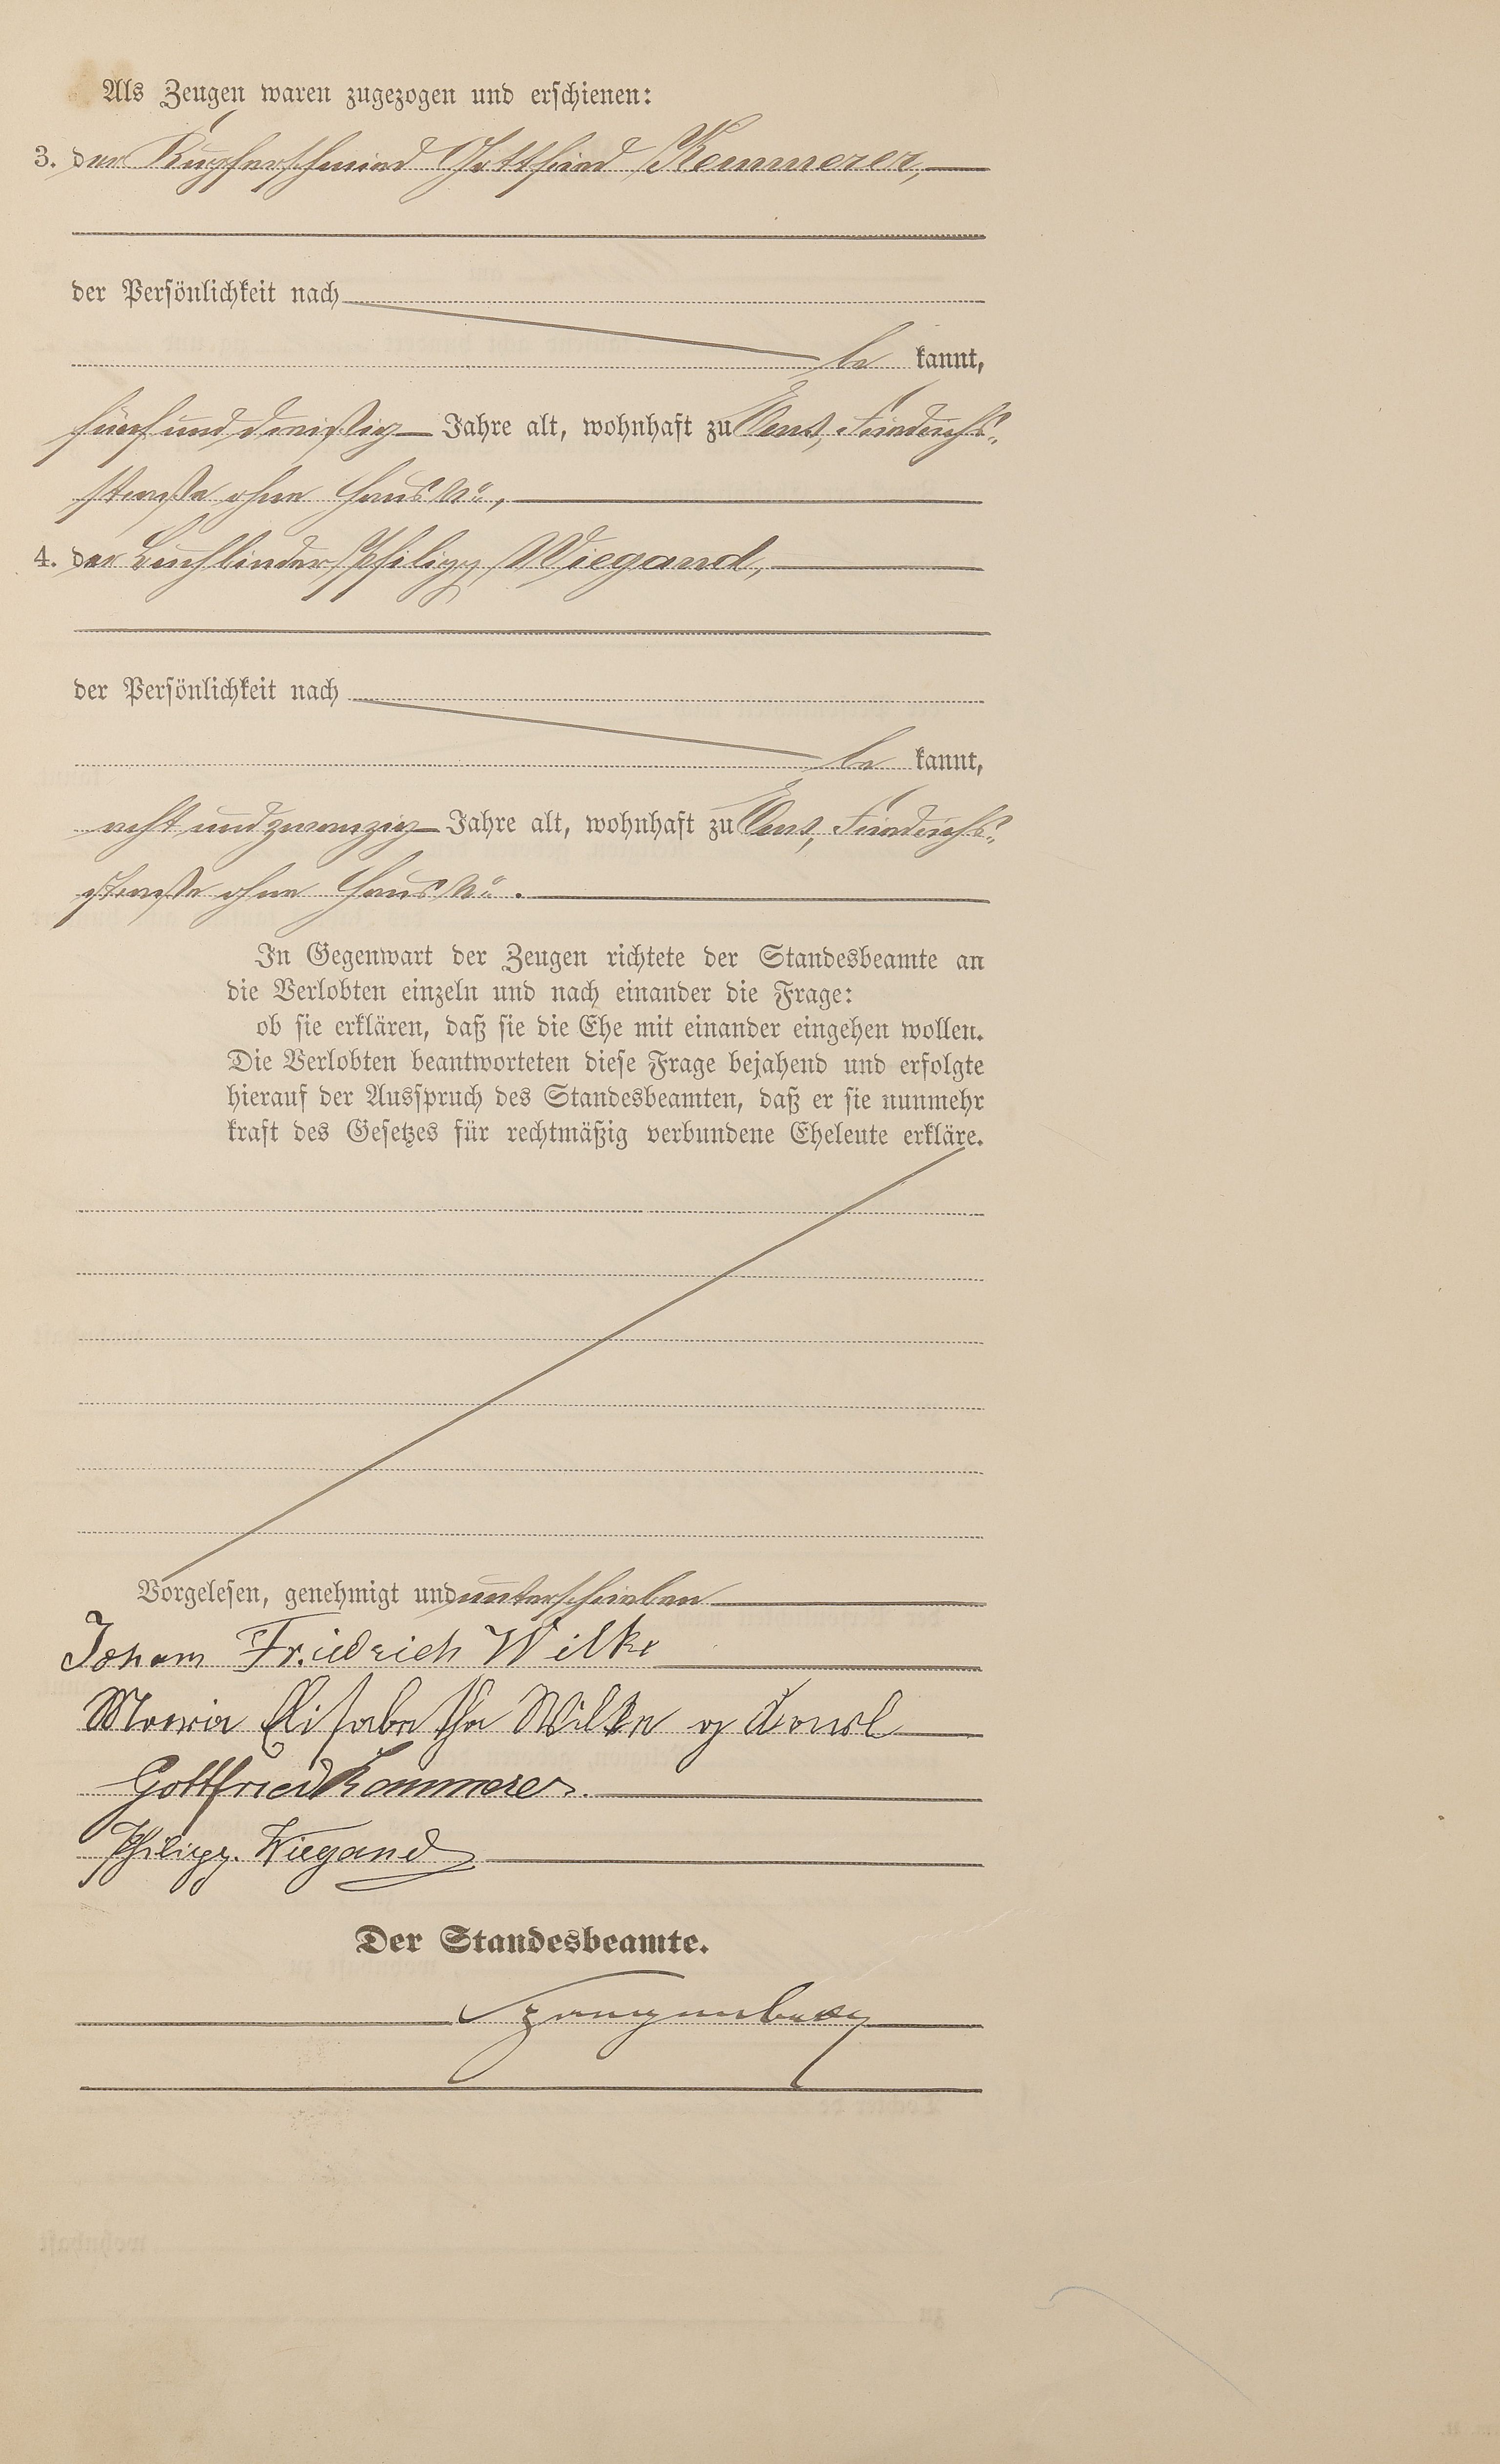 Als Zeugen waren zugezogen und erschienen:
3. der Kupferschmied Gottfried Kemmerer,
der Persönlichkeit nach
be kannt,
fünf und dreißig Jahre alt, wohnhaft zu Ems, Friedrichs-
straße ohne Haus No,
4. der Buchbinder Philipp Wiegand,
der Persönlichkeit nach
be kannt,
acht und zwanzig Jahre alt, wohnhaft zu Ems, Friedrichs-
straße ohne Haus No.
In Gegenwart der Zeugen richtete der Standesbeamte an
die Verlobten einzeln und nach einander die Frage:
ob sie erklären, daß sie die Ehe mit einander eingehen wollen.
Die Verlobten beantworteten diese Frage bejahend und erfolgte
hierauf der Ausspruch des Standesbeamten, daß er sie nunmehr
kraft des Gesetzes für rechtmäßig verbundene Eheleute erkläre.
Vorgelesen, genehmigt und unterschrieben
Johann Friedrich Wilke
Maria Elisabetha Wilke
Gottfried Kemmerer
Philipp. Wiegand
Der Standesbeamte.
Spangenberg